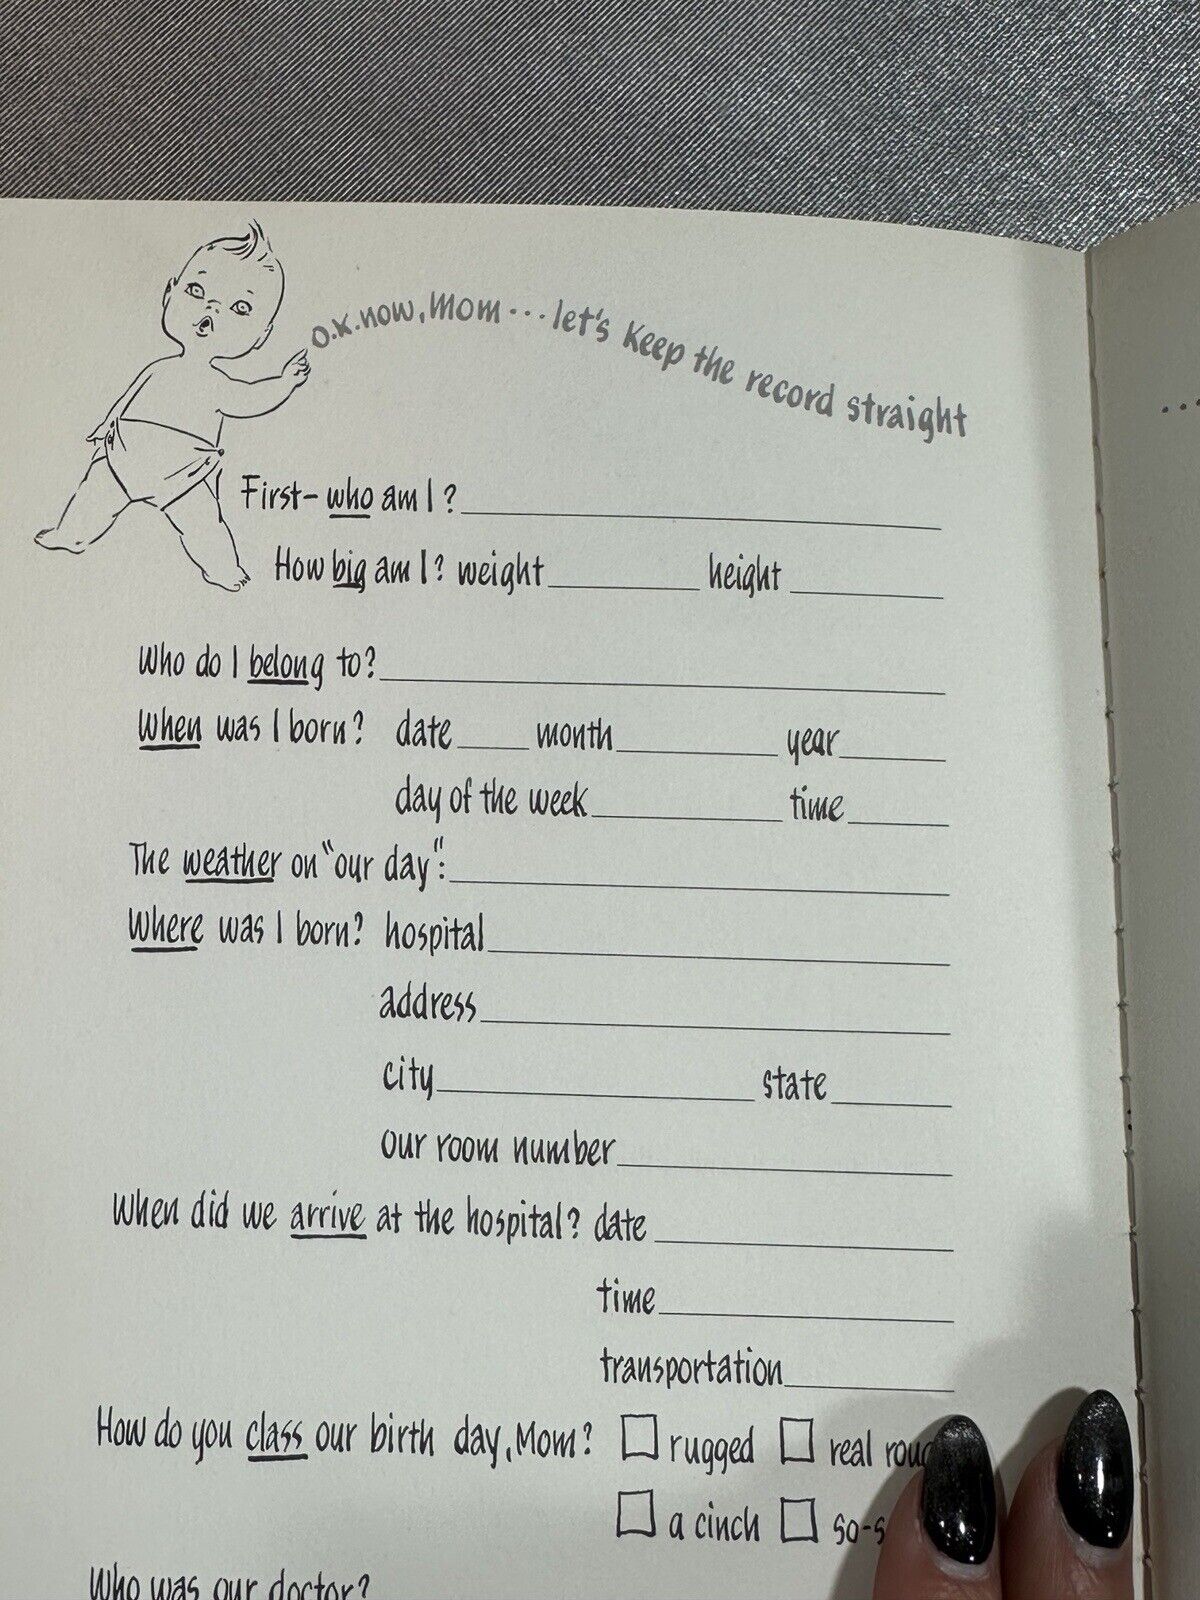 O.K. now, Mom... let's keep the record straight
First- who am I?
How big am I? weight height
Who do I belong to?
When was I born? date month year
day of the week time
The weather on "our day":
Where was I born? hospital
address
city state
our room number
When did we arrive at the hospital? date
time
transportation
How do you class our birth day, Mom? rugged real
a cinch
Who was our doctor?
...